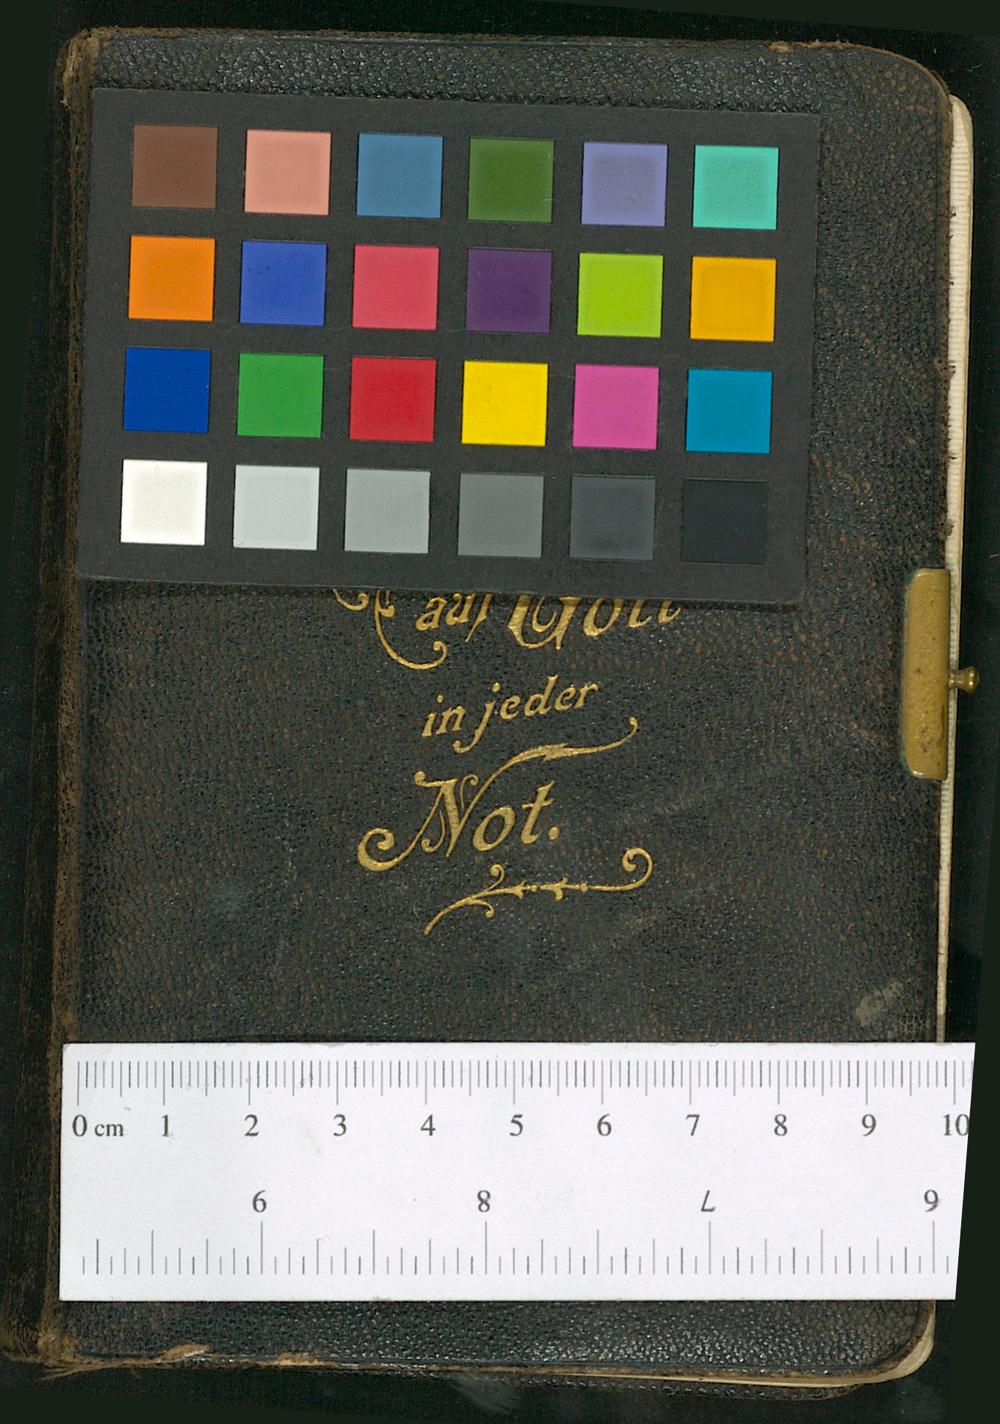 auf Gott
in jeder
Not.
0 cm 1 2 3 4 5 6 7 8 9 10
9 8 7 6